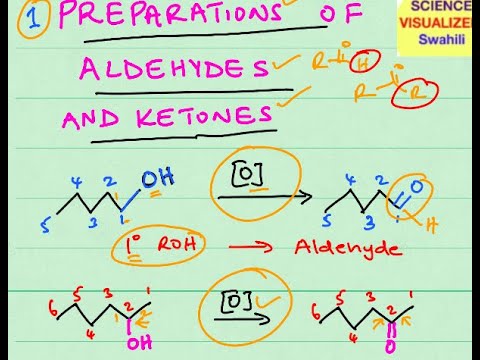 SCIENCE
VISUALIZE
Swahili
1 PREPARATIONS OF
ALDEHYDES
R O H
AND KETONES
R O R
5 4 3 2 1 1 OH
[O]
5 4 3 2 1 O H
1° ROH → Aldehyde
6 5 4 3 1 2 2 1 OH
[O]
6 5 4 3 2 1 O